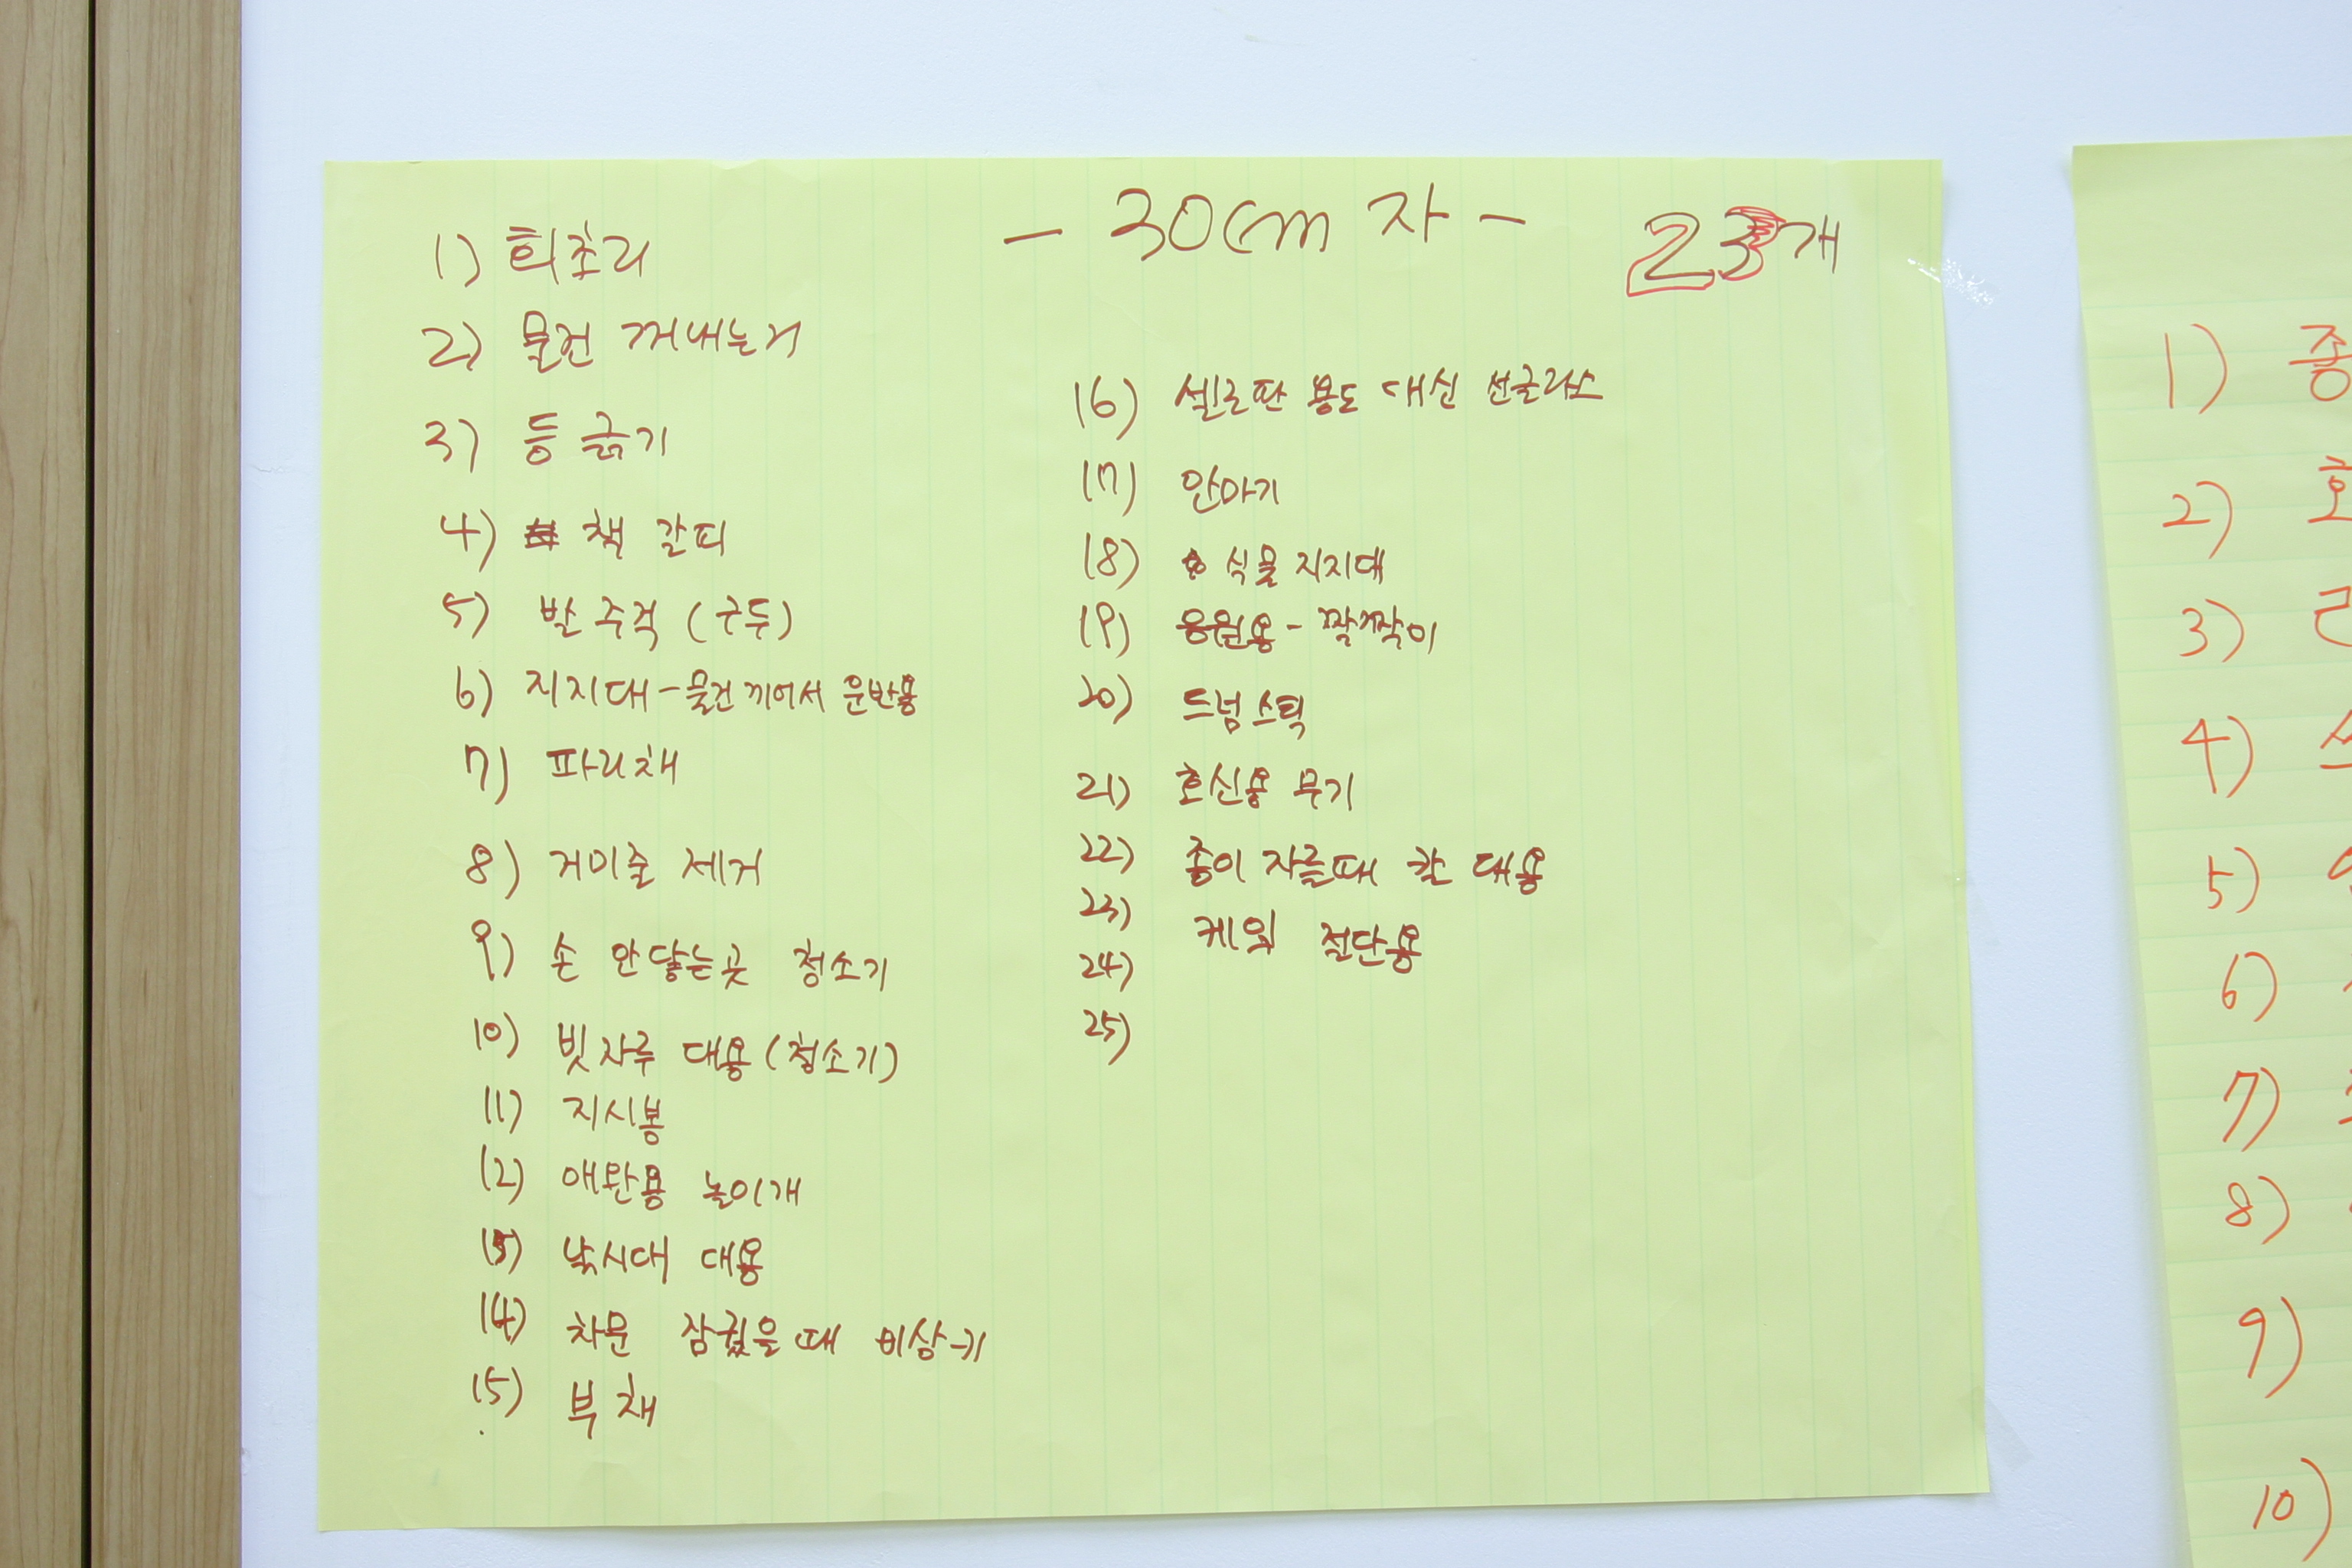 - 30cm 자 -
23개
1) 회초리
2) 물건 꺼내는거
3) 등 긁기
4) 책 갈피
5) 발 주걱 (구두)
6) 지지대 - 물건 끼어서 운반용
7) 파리채
8) 거미줄 제거
9) 손 안닿는곳 청소기
10) 빗자루 대용 (청소기)
11) 지시봉
12) 애완용 놀이개
13) 낚시대 대용
14) 차문 잠궜을때 비상키
15) 부채
16) 셀로판 용도 대신 선글라스
17) 안마기
18) 식물 지지대
19) 응원용 - 짤짝이
20) 드럼 스틱
21) 호신용 무기
22) 종이 자를때 칼 대용
23) 케잌 절단용
24)
25)
1) 종
2)
3)
4)
5)
6)
7)
8)
9)
10)